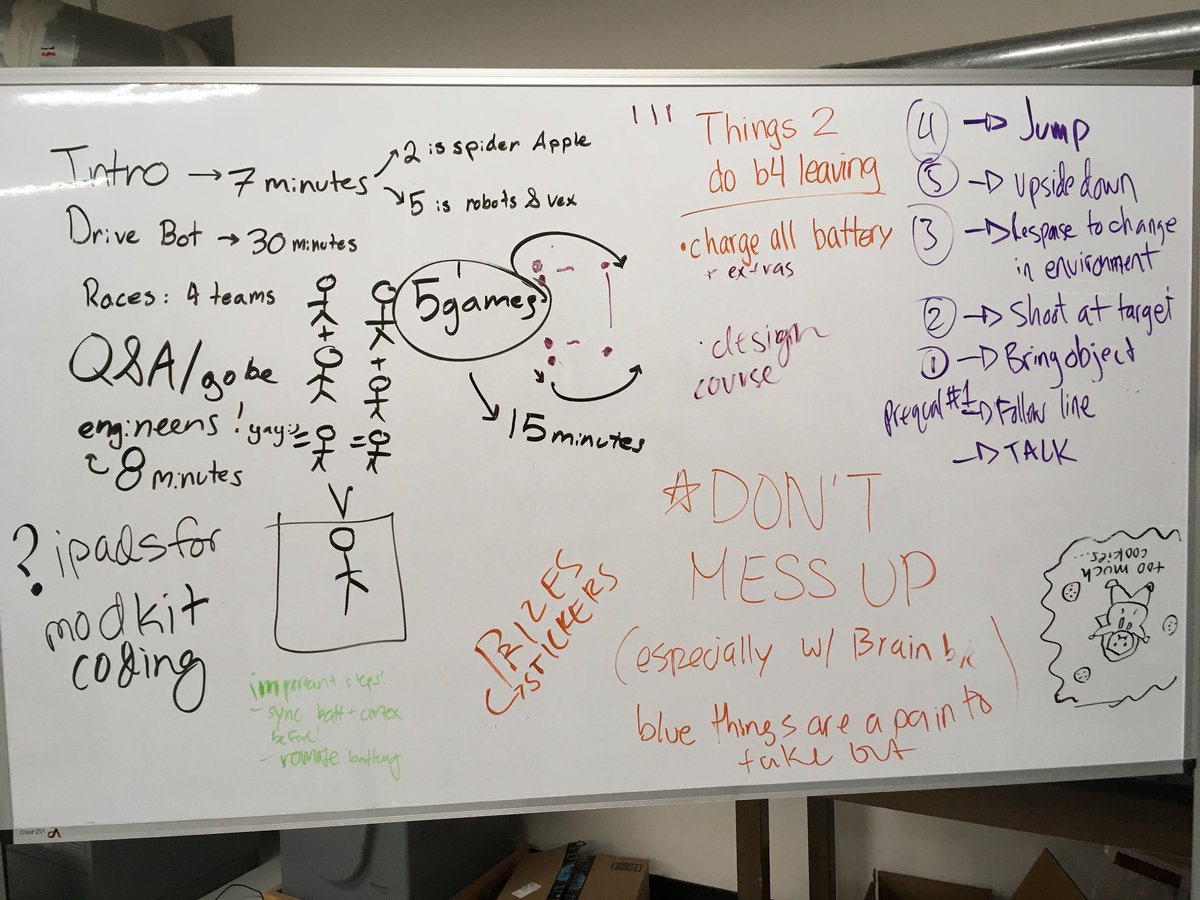 Intro → 7 minutes
2 is spider Apple
5 is robots & vex
Drive Bot → 30 minutes
Races: 4 teams
Q&A/go be
engineers! yay:)
8 minutes
? ipads for
modkit
coding
5 games
15 minutes
important steps!
- sync batt + cortex
before!
- remote battery
PRIZES
STICKERS
Things 2
do b4 leaving
• charge all battery
+ extras
• design
course
☆DON'T
MESS UP
(especially w/ Brain b/c
blue things are a pain to
take out
)
4 → Jump
5 → Upside down
3 → Response to change
in environment
2 → Shoot at target
1 → Bring object
prequal #1 → Follow line
→ TALK
too much
cookies...
VIZ-PRO